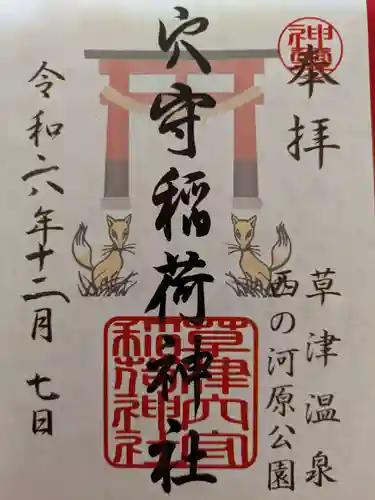 奉拝
草津温泉
西の河原公園
穴守稲荷神社
草津穴守
稲荷神社
令和六年十二月七日